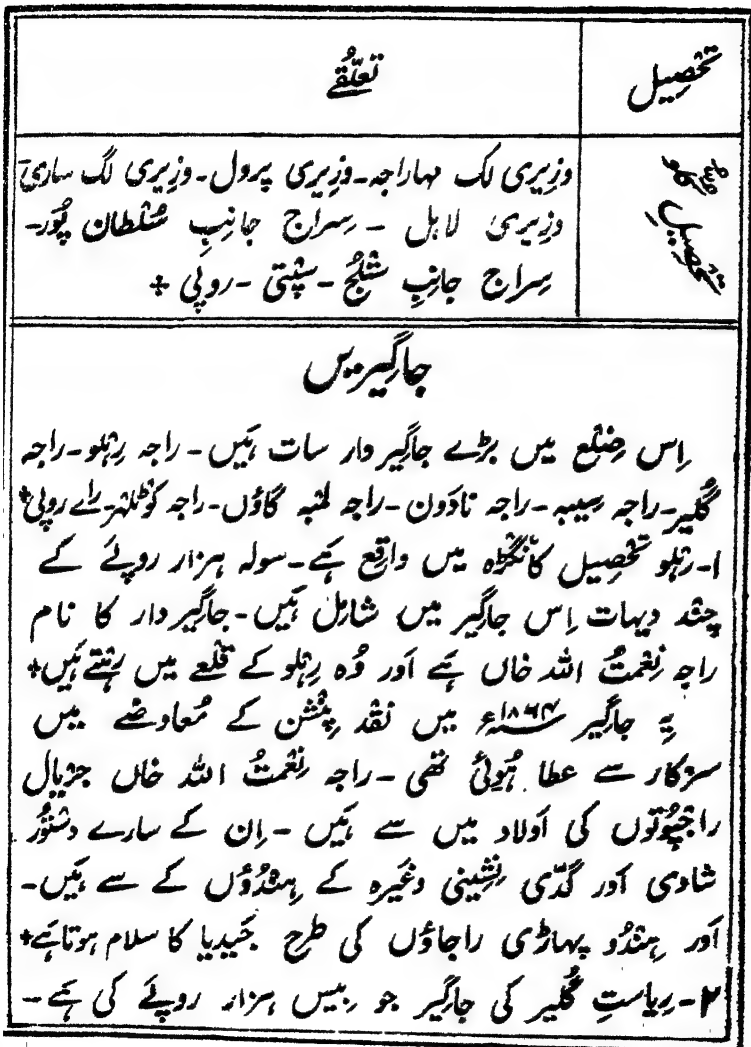 تحصیل
تعلّقے
تحصیلِ کلو
وزیری لگ مہاراجہ۔وزیری پرول۔وزیری لگ ساری
وزیری لاہل ۔ سراج جانبِ سُلطان پُور۔
سراج جانبِ ستلج ۔سپتی ۔روپی +
جاگیریں
اِس ضلع میں بڑے جاگیردار سات ہیں۔ راجہ رہلو۔راجہ
گُلیر۔راجہ سیبہ۔راجہ نادَون۔راجہ لمبہ گاؤں۔راجہ کوٹلہر۔راے روپی+
۱۔رہلو تحصیل کانگڑہ میں واقع ہے۔سولہ ہزار روپئے کے
چند دیہات اِس جاگیر میں شامل ہیں۔جاگیردار کا نام
راجہ نِعمتُ اللہ خاں ہے اَور وُہ رہلو کے قلعے میں رہتے ہیں+
یہ جاگیر ۱۸۶۴ء میں نقد پنشن کے مُعاوضے میں
سرکار سے عطا ہُوئی تھی ۔راجہ نِعمتُ اللہ خاں جریال
راجپُوتوں کی اَولاد میں سے ہیں ۔اِن کے سارے دستُور
شادی اَور گدّی نشینی وغیرہ کے ہندُوؤں کے سے ہیں۔
اَور ہندُو پہاڑی راجاؤں کی طرح جَیدیا کا سلام ہوتا ہے+
۲۔ریاستِ گُلیر کی جاگیر جو بیس ہزار روپئے کی ہے۔